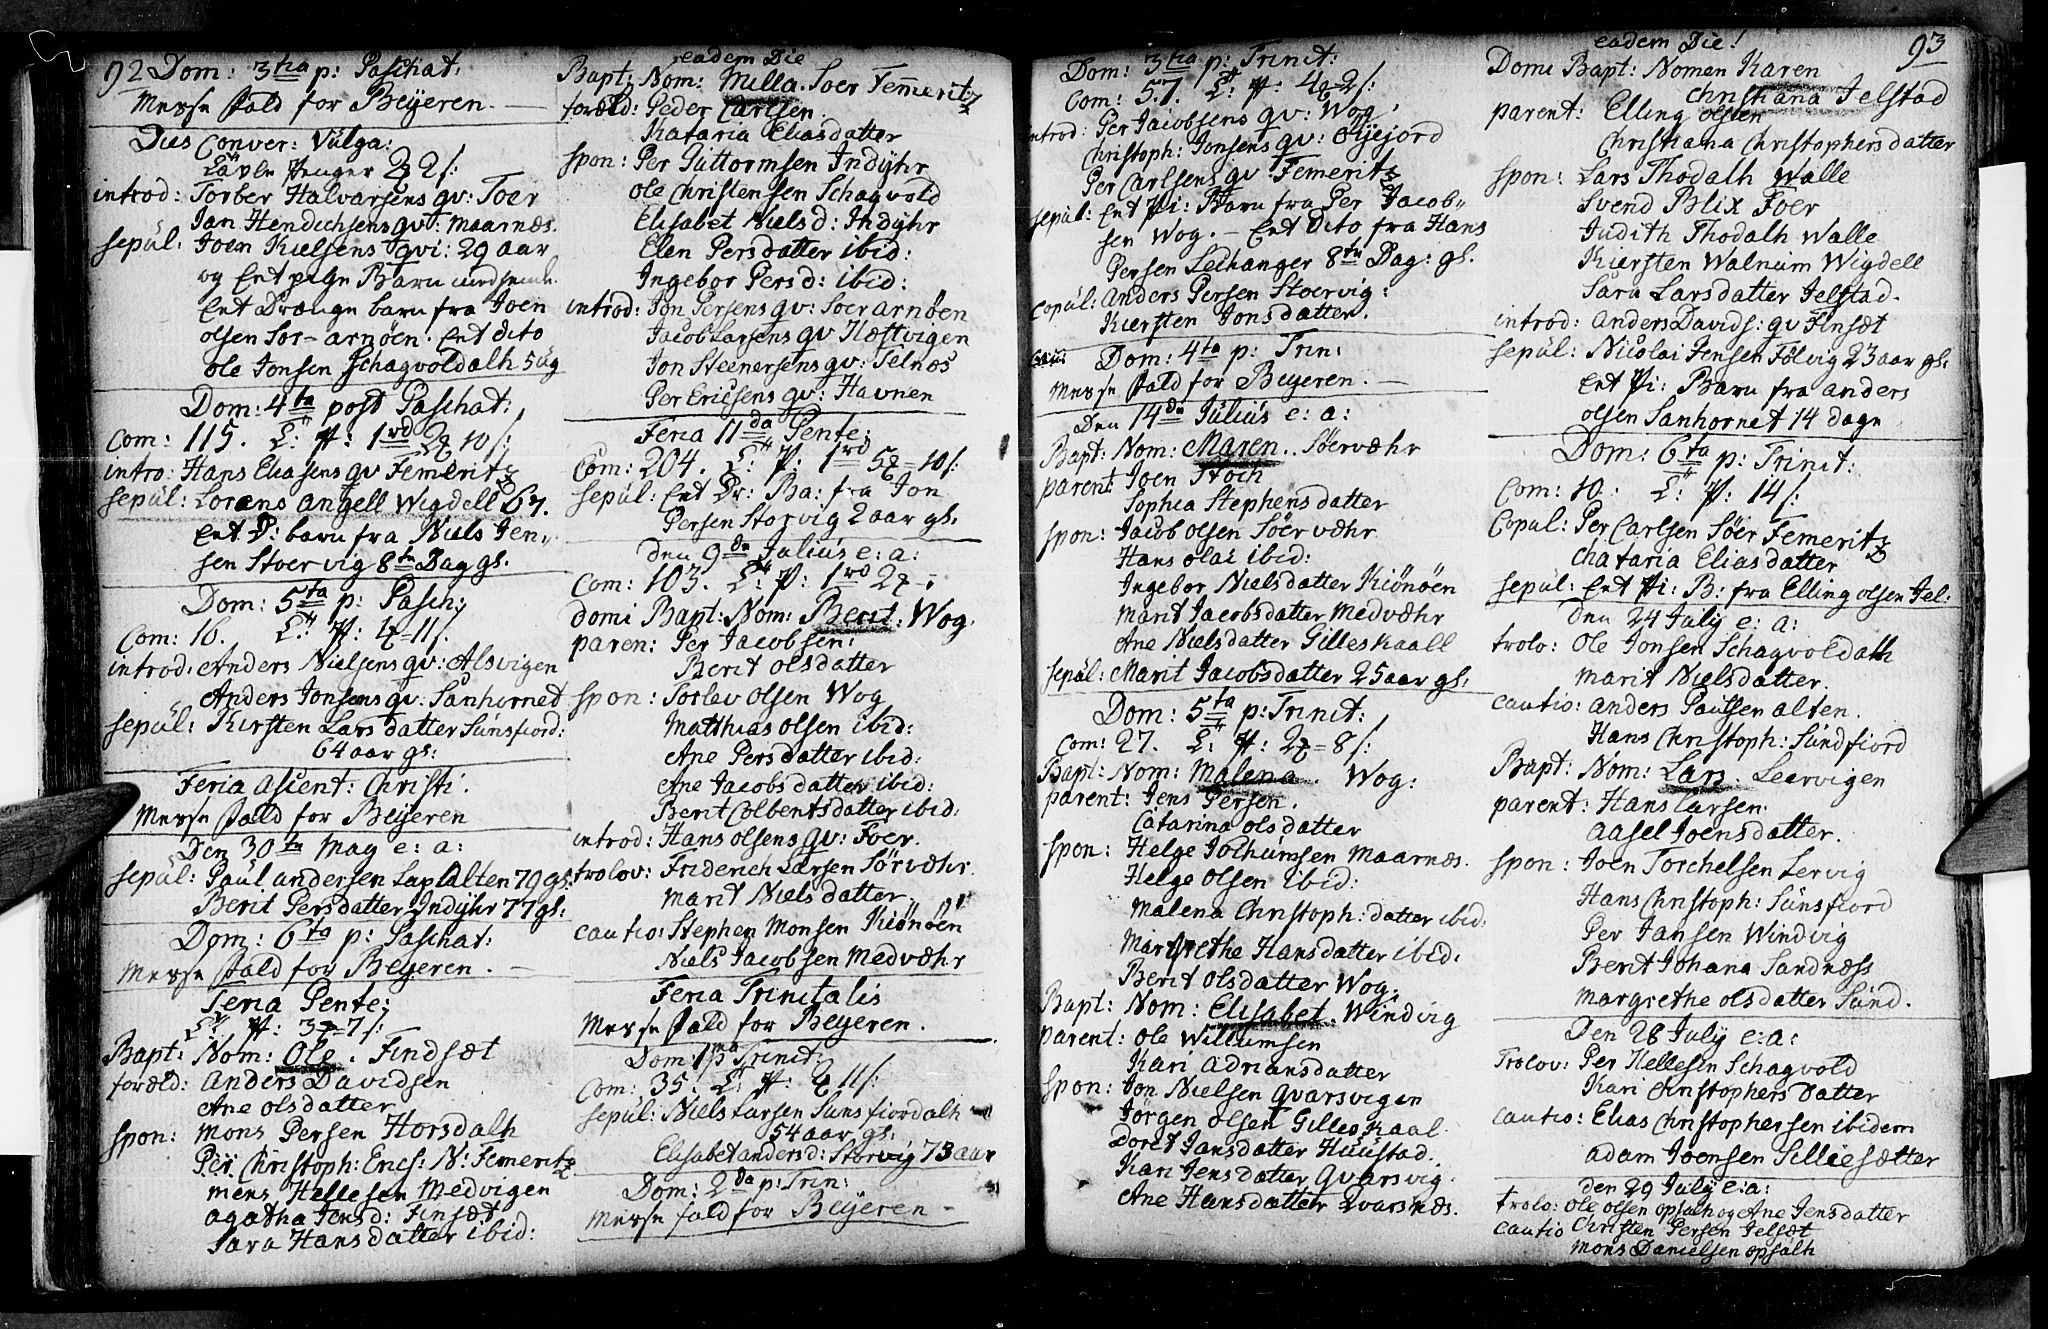 92 Dom: 3tia p: Paschat:
Messe fald for Beyeren.
Dies Conver: Vulga:
Tavle Penger 2 /:
introd: Torber Halvarsens qv: Foer
Jan Hendichsens qv: Maarnæs.
sepul: Joen Kielsens qvi: 29 aar
og Ent Barn
Ent Drænge barn fra Joen
olsen Sor-arnöen. Ent dito
Ole Jonsen Schagvoldalh 5 ug
Dom: 4ta post Paschat:
Com: 115. 1rd 10 /:
intro: Hans Eliasens qv Femerit
sepul: Lorens Angell Wigdell 67.
Ent P: barn fra Niels Jen„
sen Stoervig 8te Dag gl.
Dom: 5ta p: Pasch:
Com: 16. 11 /:
introd: Anders Nielsens qv: Alsvigen
Anders Jonsens qv: Sanhornet
sepul: Kirsten Larsdatter Sunsfiord:
64 aar gl:
Feria Ascent: Christi.
Messe fald for Beyeren
Den 30te May e: a:
sepul: Paul andersen Lap alten 70 gl:
Berit Persdatter Indyhr 77 gl:
Dom: 6ta p: Paschat:
Messe fald for Beyeren.
Feria Pente:
7 /:
Bapt: Nom: Ole. Findsæt
foræld: Anders Davidsen
Ane olsdatter
spon: Mons Persen Horsdalh
Per. Christoph: Erics: N: Femerit
Mens Hellesen Medvigen
Agatha Jensd: Finsæt
Sara Hansdatter ibid:
eadem Die
Bapt: Nom: Milla. Soer Femerit:
foræld: Peder Carlsen.
Kataria Eliasdatter
spon: Per Guttormsen Indyhr
Ole Christensen Schagvold
Elisabet Nielsd: Indyhr
Elen Persdatter ibid:
Ingebor Persd: ibid:
introd: Jon Persens qv: Soer arnöen
Jacob Larsens qv Hæstvigen
Jon Steenersens qv: Selnæs
Per Ericsens qv: Havnen
Feria 11da Pente:
Com: 204. 1rd 5 10 /:
sepul: Ent Dr: Ba: fra Jon
Persen Storvig 2 aar gl.
den 9de Julius e: a:
Com: 103. 1rd 2
domi Bapt: Nom: Berit: Wog.
paren: Per Jacobsen:
Berit olsdatter
spon: Torlev olsen Wog
Matthias olsen ibid:
Ane Persdatter ibid:
Ane Jacobsdatter ibid:
Berit Colbentsdatter ibid:
introd: Hans olsens qv: Foer.
trolov: Friderich Larsen Sörværhr.
Marit Nielsdatter
cautio: Stephen Monsen Kiönöen
Niels Jacobsen Medvæhr
Feria Trinitalis
Messe fald for Beyeren.
Dom: 1ma Trinit:
Com: 35. 11 /:
sepul: Niels Larsen Sunsfiordalh
54 aar gl:
Elisabet andersd: Storvig 73 aar
Dom: 2da p: Trin:
Messe fald for Beyeren
Dom: 3tia p: Trinit:
Com: 57. 2 /:
introd: Per Jacobsens qv: Wog.
Christoph: Jonsens qv:
Per Carlsens qv Femerit
sepul: Ent Pi: Barn fra Per Jacob„
sen Wog. — Ent dito fra Hans
Persen Lechanger 8te Dag: gl.
copul: Anders Persen Stoervig:
Kiersten Jonsdatter.
Dom: 4ta p: Trin:
Messe fald for Beyeren.
Den 14de Julius e: a:
Bapt: Nom: Maren. Söerværhr
parent: Joen Stoch
Sophia Stephensdatter
spon: Jacob olsen Söer værhr
Hans Olai ibid:
Ingebor Nielsdatter Kiönöen
Marit Jacobsdatter Medvæhr
Ane Nielsdatter Gilleskaall
sepul: Marit Jacobsdatter 25 aar gl:
Dom: 5ta p: Trinit:
Com: 27. 8 /:
Bapt: Nom: Malena. Wog:
parent: Jens Persen.
Catarina olsdatter
spon: Helge Jochumsen Maarnæs.
Helge olsen ibid:
Malena Christoph: datter ibid:
Margrethe Hansdatter ibid:
Berit olsdatter Wog.
Bapt: Nom: Elisabet. Windvig
parent: Ole Willumsen
Kari Adriansdatter
spon: Jon Nielsen Qvarsvigen
Jörgen olsen Gilleskaal.
Doret Jansdatter Huustad.
Kari Jensdatter Qvarsvig.
Ane Hansdatter Qvarsnæs.
eadem Die! 93
Domi Bapt: Nomen Karen
Christiana Jelstad
parent: Elling olsen
Christiana Christophersdatter
spon: Lars Thodalh Walle
Svend Blix Foer
Judith Thodalh Walle
Kiersten Walnum Wigdell
Sara Larsdatter Jelstad.
introd: Anders Davids: qv Finsæt
sepul: Nicolai Jensen Fölvig 23 aar gl:
Ent Pi: Barn fra anders
olsen Sanhornet 14 dage
Dom: 6ta p: Trinit:
Com: 10. 14 /:
Copul: Per Carlsen Söer Femerit
Chataria Eliasdatter
sepul: Ent Pi: B: fra Elling olsen Jel:
den 24 July e: a:
trolo: Ole Jonsen Schagvoldalh
Marit Nielsdatter.
cautio: Anders Paulsen alten.
Hans Christoph: Sundfiord
Bapt: Nom: Lars. Leervigen
parent: Hans Larsen.
Aasel Joensdatter.
spon: Joen Torchelsen Lervig
Hans Christoph: Sunsfiord
Per Jansen Windvig
Berit Johana Sandnæss
Margrethe olsdatter Sund.
Den 28 July e: a:
Trolov: Per Hellesen Schagvold
Kari Christophers Datter
cautio: Elias Christophersen ibidem
Adam Joensen Selliesætter
den 29 July e: a:
trolo: Ole olsen opsalh og Ane Jensdatter
cautio Christen Persen Jelsæt
Mons Danielsen opsalh